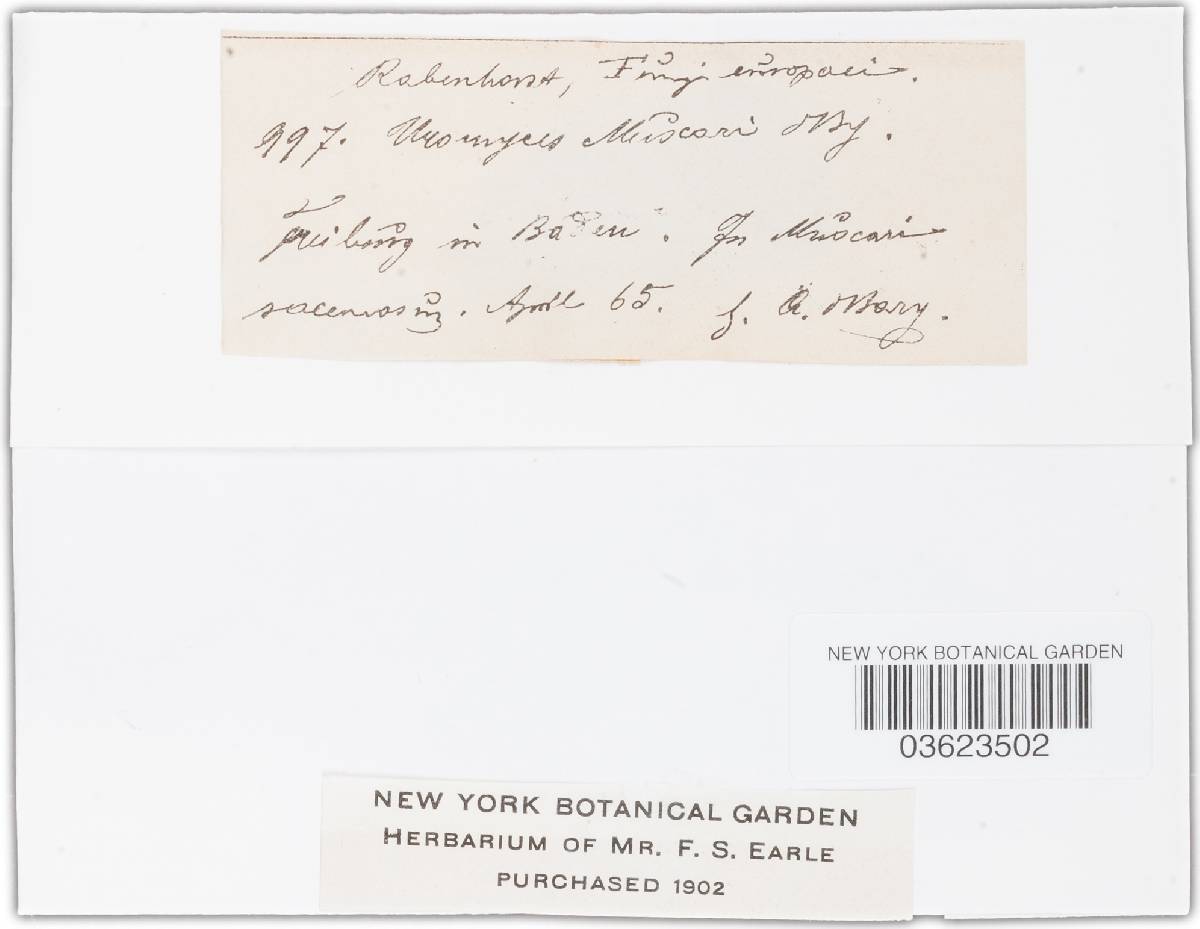 Rabenhorst, Fungi europaei.
997. Uromyces Muscari dBy.
Freiburg in Baden. In Muscari
racemosum. April 65. f. A. dBary.
NEW YORK BOTANICAL GARDEN
03623502
NEW YORK BOTANICAL GARDEN
HERBARIUM OF MR. F. S. EARLE
PURCHASED 1902